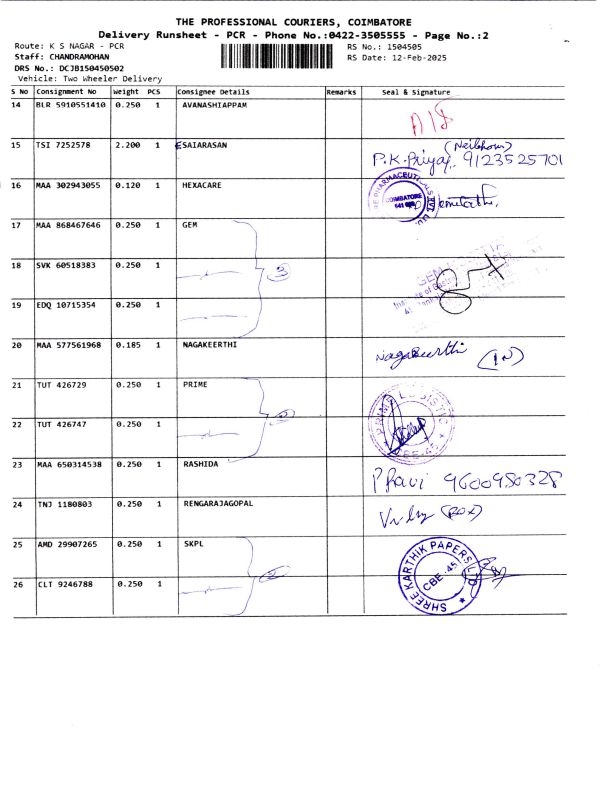 THE PROFESSIONAL COURIERS, COIMBATORE
Delivery Runsheet - PCR - Phone No.:0422-3505555 - Page No.:2
Route: K S NAGAR - PCR RS No.: 1504505
Staff: CHANDRAMOHAN RS Date: 12-Feb-2025
DRS No.: DCJB150450502
Vehicle: Two Wheeler Delivery
S No Consignment No Weight PCS Consignee Details Remarks Seal & Signature
14 BLR 5910551410 0.250 1 AVANASHIAPPAM
15 TSI 7252578 2.200 1 ESAIARASAN
P.K.Priya, 9123525701
16 MAA 302943055 0.120 1 HEXACARE
COIMBATORE
17 MAA 868467646 0.250 1 GEM
18 SVK 60518383 0.250 1 3
GEM
19 EDQ 10715354 0.250 1
20 MAA 577561968 0.185 1 NAGAKEERTHI
Nagakeerthi
21 TUT 426729 0.250 1 PRIME
22 TUT 426747 0.250 1 2
PRIME LOGISTIC CBE-45
23 MAA 650314538 0.250 1 RASHIDA
9600980328
24 TNJ 1180803 0.250 1 RENGARAJAGOPAL
25 AMD 29907265 0.250 1 SKPL
26 CLT 9246788 0.250 1 2
SHREE KARTHIK PAPERS LTD. CBE-45